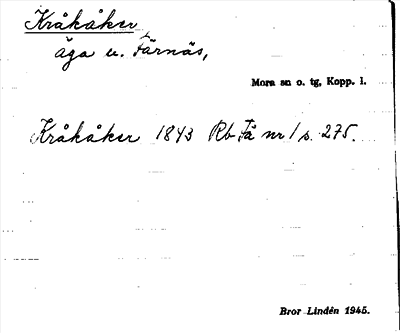 Kråkåker
äga u. Färnäs,
Mora sn o. tg, Kopp. l.
Kråkåker 1843 Rb Få nr 1 s. 275.
Bror Lindén 1945.